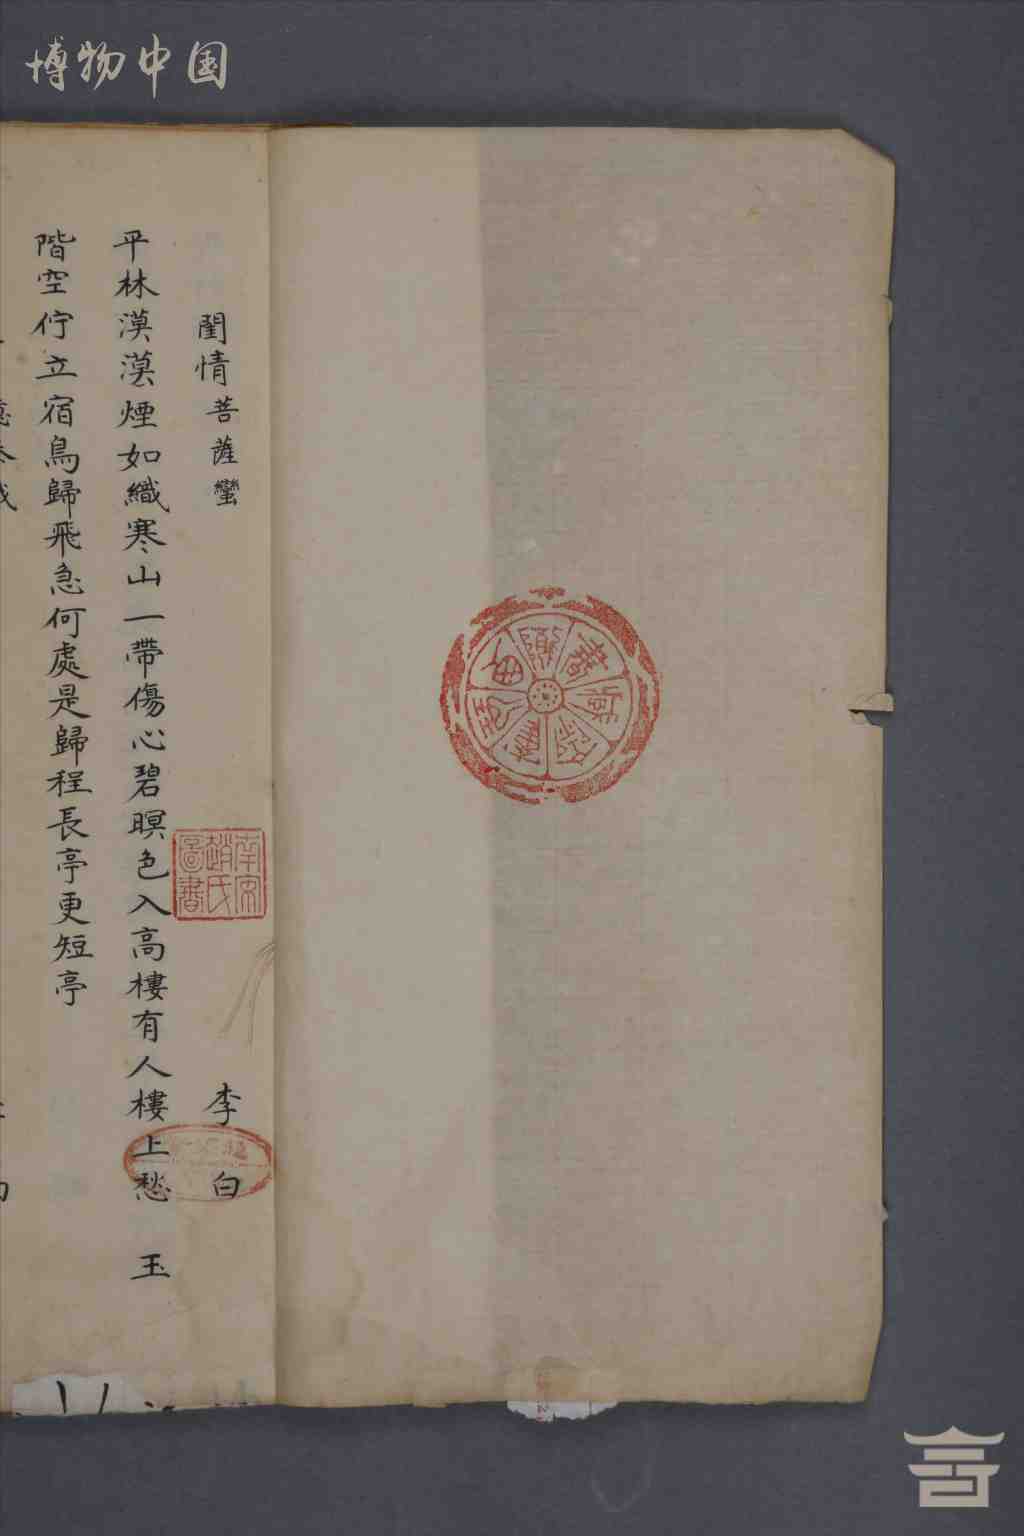 博物中国
閨情菩薩蠻
李白
平林漠漠煙如織寒山一帶傷心碧暝色入高樓有人樓上愁 玉
階空佇立宿鳥歸飛急何處是歸程長亭更短亭
南宋
趙氏
圖書